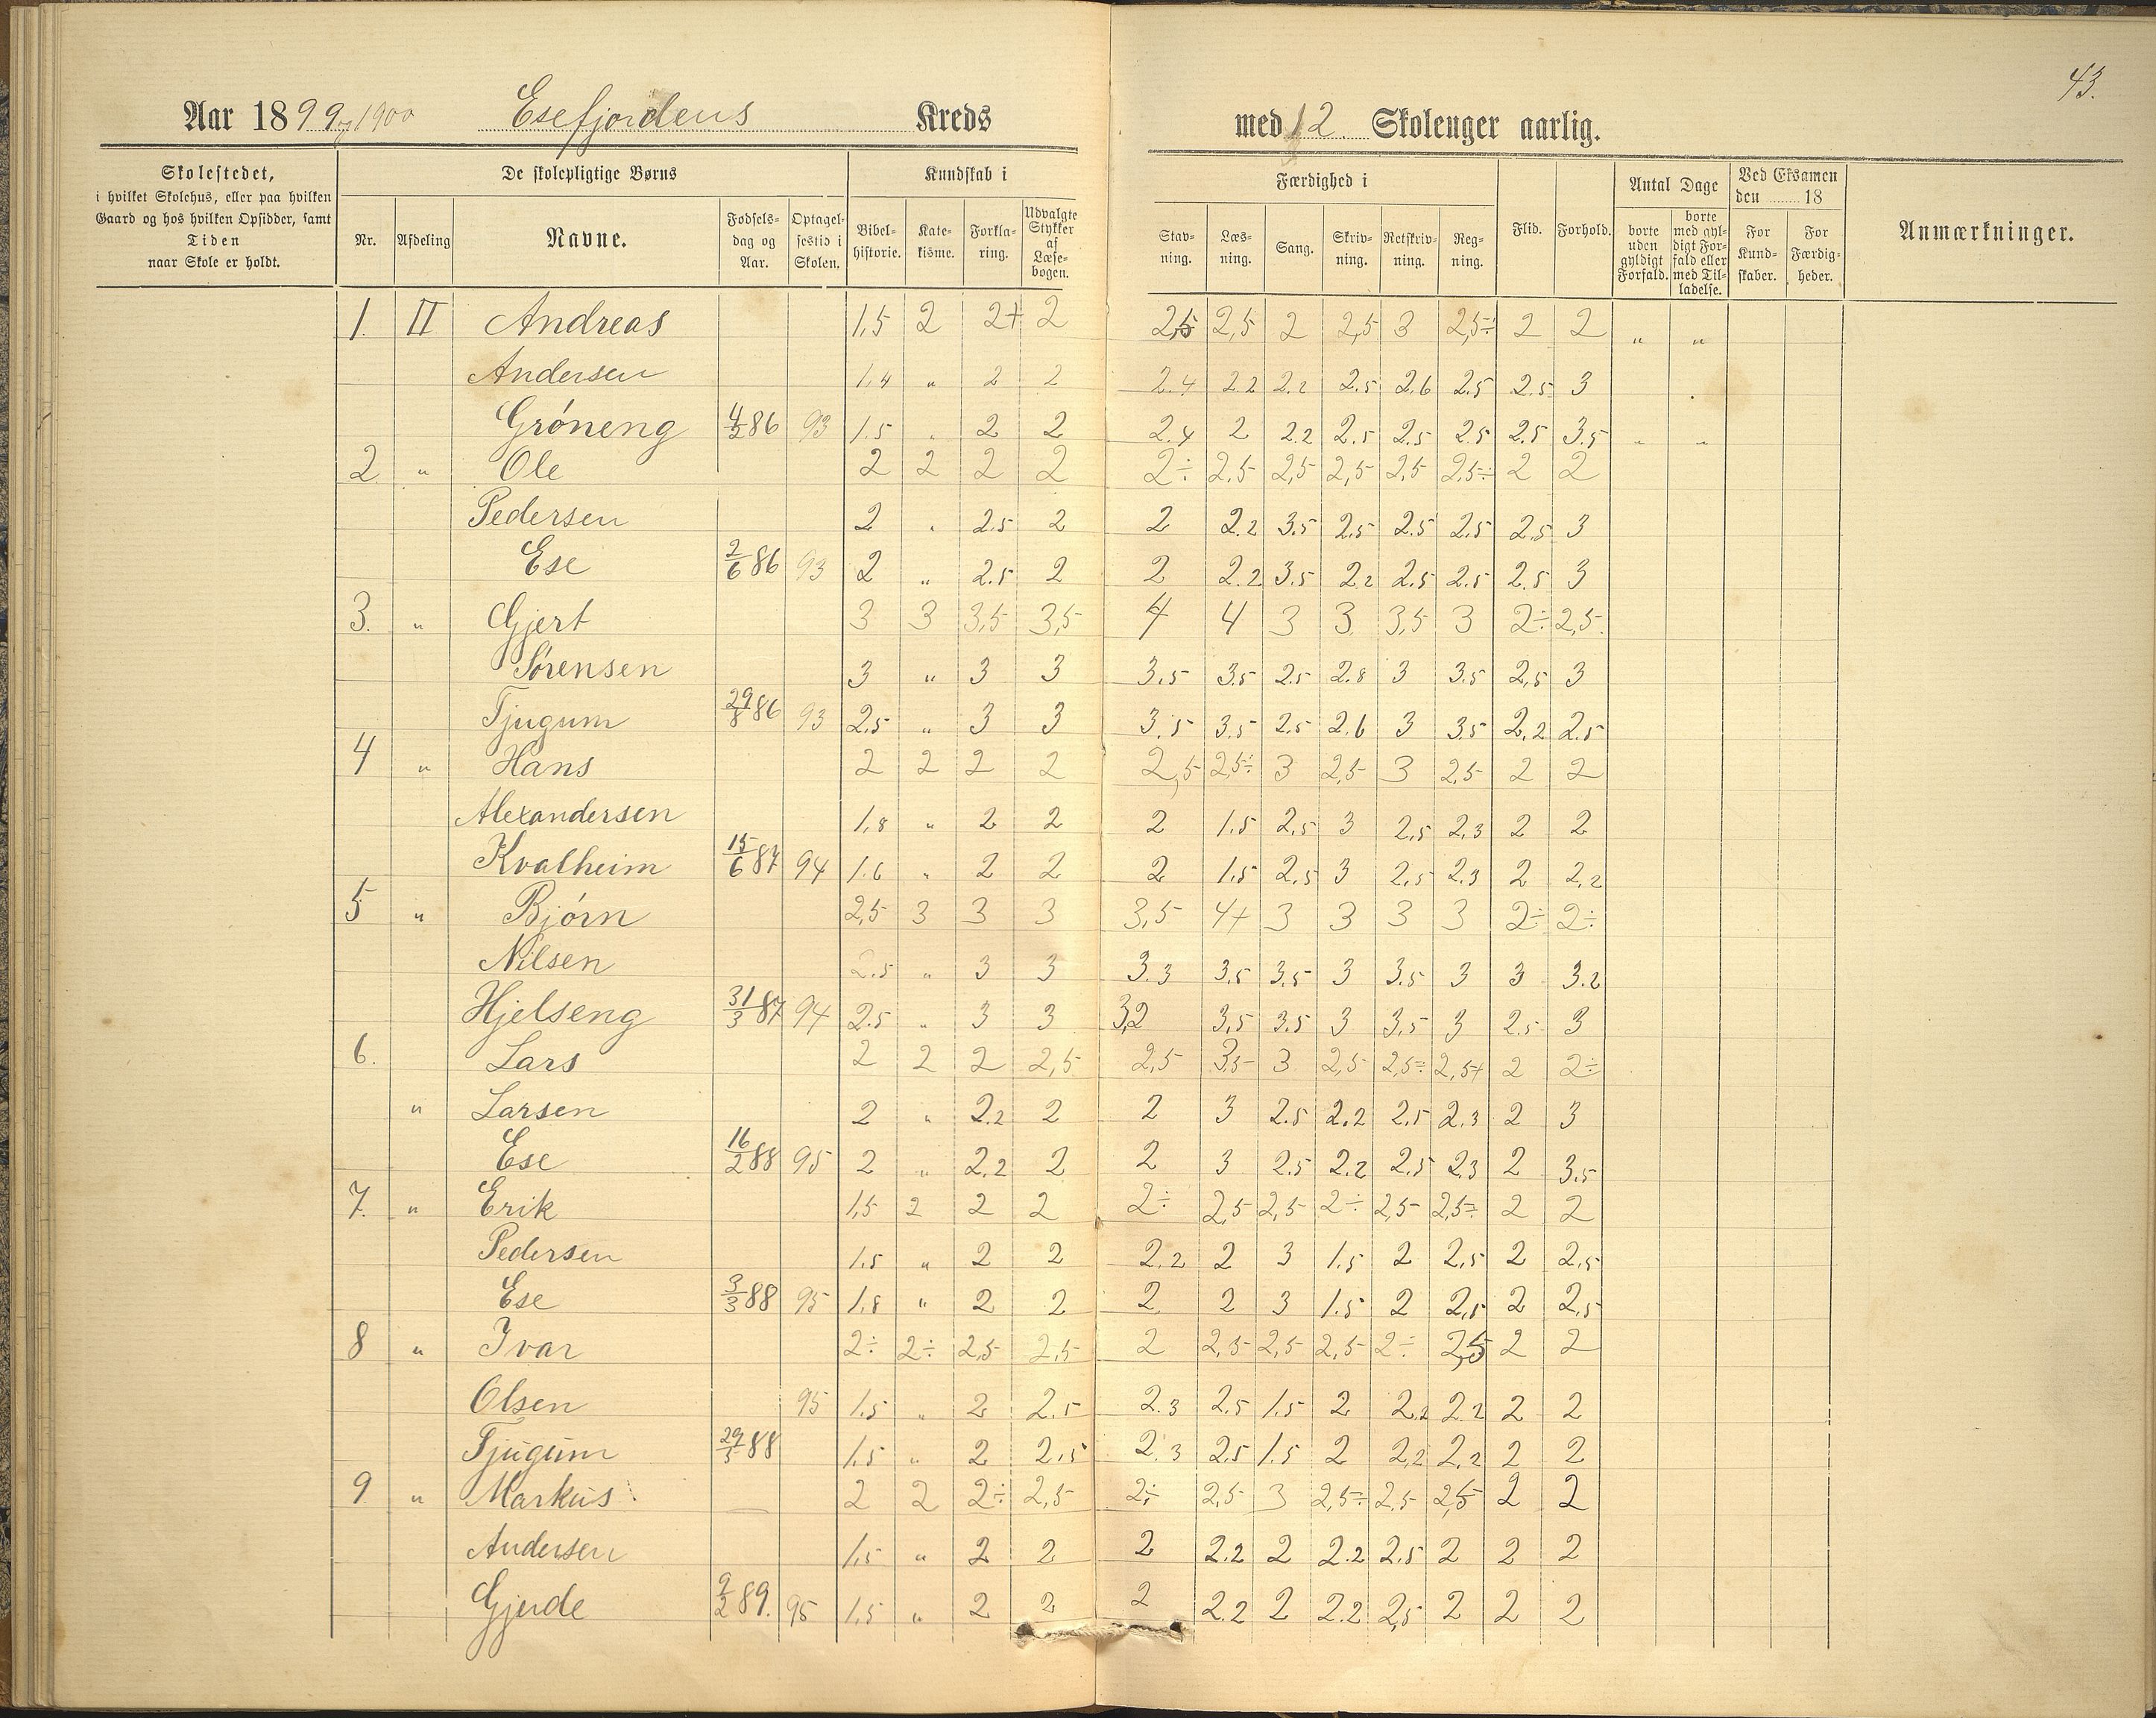 43.
Aar 1899 og 1900 Esefjordens Kreds med 12 Skoleuger aarlig.
Skolestedet, i hvilket Skolehus, eller paa hvilken Gaard og hos hvilken Opsidder, samt Tiden naar Skole er holdt.
De skolepligtige Børns
Nr. Afdeling Navne. Fødselsdag og Aar. Optagelsestid i Skolen.
Kundskab i
Bibelhistorie. Katekisme. Forklaring. Udvalgte Stykker af Læsebogen.
Færdighed i
Stavning. Læsning. Sang. Skrivning. Retskrivning. Regning.
Flid. Forhold.
Antal Dage
borte uden gyldigt Forfald. borte med gyldigt Forfald eller med Tilladelse.
Ved Eksamen den 18
For Kundskaber. For Færdigheder.
Anmærkninger.
1. II Andreas 1,5 2 2+ 2 2,5 2,5 2 2,5 3 2,5÷ 2 2 " "
Andersen 1.4 " 2 2 2.4 2.2 2.2 2.5 2.6 2.5 2.5 3
Gróneng 4/2 86 93 1.5 " 2 2 2.4 2 2.2 2.5 2.5 2.5 2.5 3.5 " "
2. " Ole 2 2 2 2 2÷ 2.5 2,5 2,5 2,5 2,5÷ 2 2
Pedersen 2 " 2.5 2 2 2.2 3.5 2.5 2.5 2.5 2.5 3
Ese 2/6 86 93 2 " 2.5 2 2 2.2 3.5 2.2 2.5 2.5 2.5 3
3. " Gjert 3 3 3,5 3,5 4 4 3 3 3,5 3 2÷ 2,5
Sórensen 3 " 3 3 3.5 3.5 2.5 2.8 3 3.5 2,5 3
Tjugum 29/8 86 93 2.5 " 3 3 3.5 3.5 2.5 2.6 3 3.5 2.2 2.5
4 " Hans 2 2 2 2 2,5 2,5÷ 3 2,5 3 2,5 2 2
Alexandersen 1,8 " 2 2 2 1.5 2.5 3 2.5 2.3 2 2
Kvalheim 15/6 87 94 1.6 " 2 2 2 1.5 2.5 3 2.5 2.3 2 2.2
5 " Bjórn 2,5 3 3 3 3,5 4+ 3 3 3 3 2÷ 2÷
Nilsen 2.5 " 3 3 3.3 3.5 3.5 3 3.5 3 3 3.2
Hjelseng 31/3 87 94 2.5 " 3 3 3,2 3,5 3.5 3 3.5 3 2.5 3
6. Lars 2 2 2 2,5 2,5 3,5 3 2,5 2,5÷ 2,5+ 2 2÷
" Larsen 2 " 2.2 2 2 3 2.5 2.2 2.5 2.3 2 3
Ese 16/2 88 95 2 " 2.2 2 2 3 2.5 2.2 2.5 2.3 2 3.5
7. " Erik 1,5 2 2 2 2÷ 2,5 2,5 2÷ 2,5 2,5÷ 2 2
Pedersen 1.5 " 2 2 2.2 2 3 1.5 2 2.5 2 2.5
Ese 3/3 88 95 1.8 " 2 2 2. 2 3 1.5 2 2.5 2 2.5
8 " Ivar 2÷ 2÷ 2,5 2,5 2 2,5 2,5 2,5 2÷ 2,5 2 2
Olsen 95 1.5 " 2 2.5 2.3 2.5 1.5 2 2.2 2.2 2 2
Tjugum 29/5 88 1.5 " 2 2.5 2.3 2.5 1.5 2 2.2 2.2 2 2
9. " Markus 2 2 2÷ 2,5 2÷ 2,5 3 2,5÷ 2,5 2,5 2 2
Andersen 1.5 " 2 2 2 2.2 2 2.2 2.5 2 2 2
Gjerde 9/2 89. 95 1.5 " 2 2 2 2.2 2 2.2 2,5 2 2 2